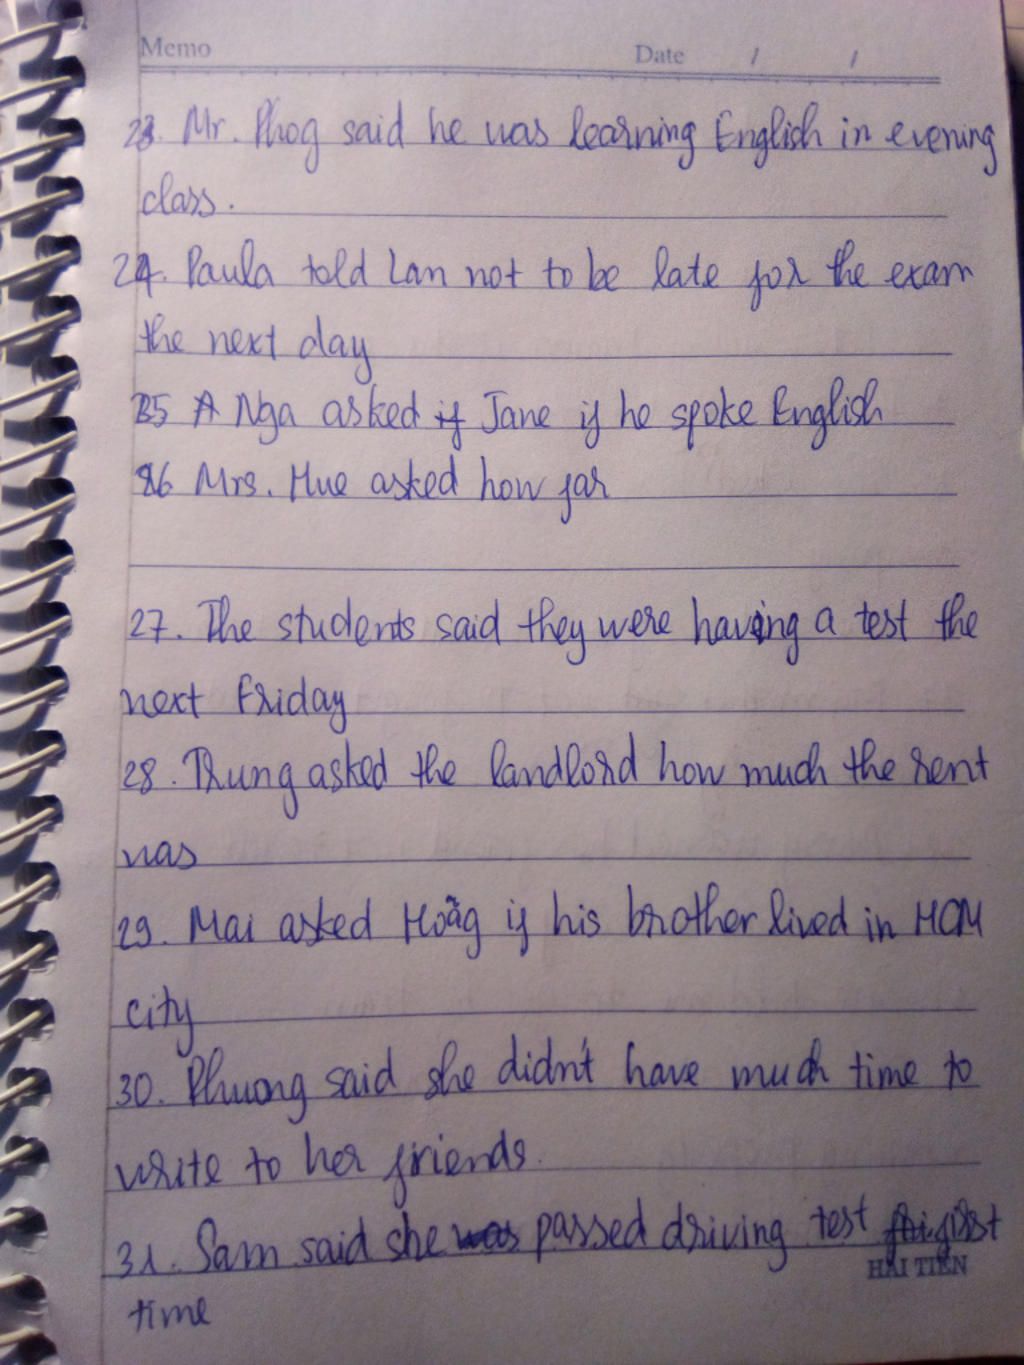 Memo Date / /
23. Mr. Phog said he was learning English in evening
class.
24. Paula told Lan not to be late for the exam
the next day
25 Nga asked if Jane if he spoke English
26 Mrs. Hue asked how far
27. The students said they were having a test the
next Friday
28. Trung asked the landlord how much the rent
was
29. Mai asked Hoàg if his brother lived in HCM
city
30. Phuong said she didn't have much time to
write to her friends.
31. Sam said she was passed driving test first
HẢI TIẾN
time